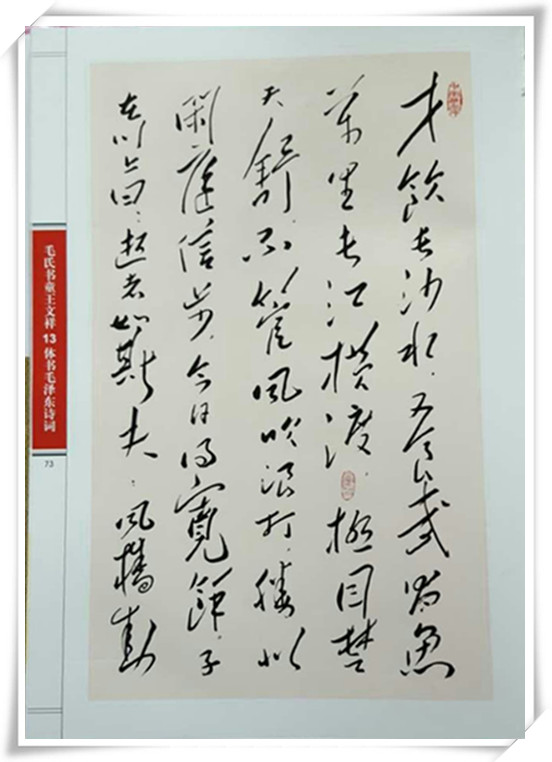 才飲长沙水.又食武昌魚
萬里长江橫渡.極目楚
天舒.不管風吹浪打.勝似
閑庭信步.今日得寬餘.子
在川上曰:逝者如斯夫:風樯動
毛氏书童王文样13体书毛泽东诗词
73